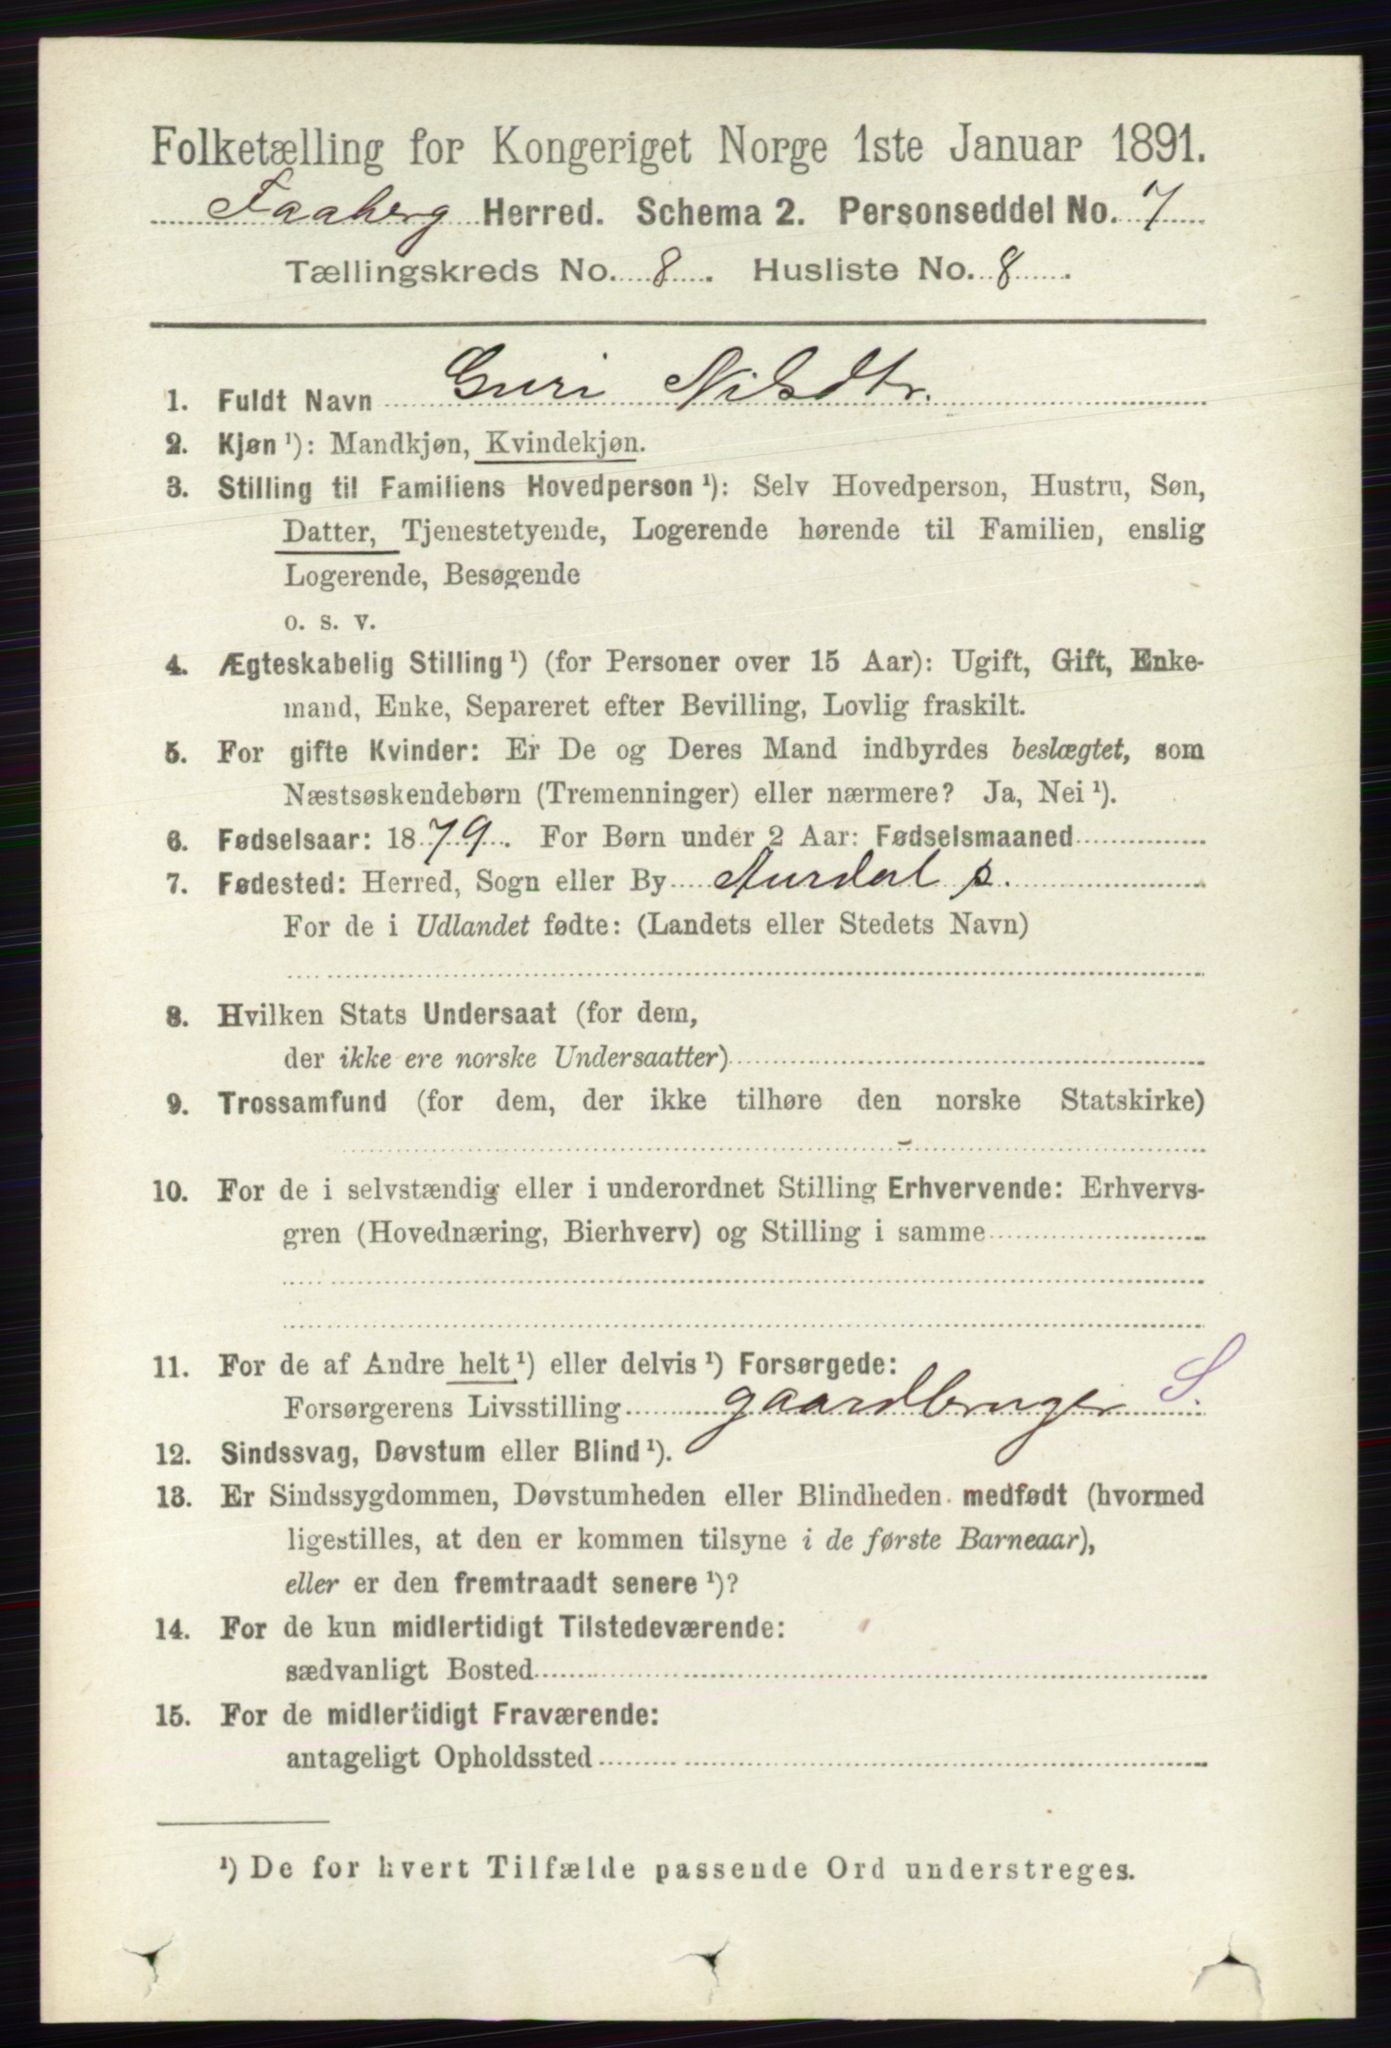 Folketælling for Kongeriget Norge 1ste Januar 1891.
Faaberg Herred. Schema 2. Personseddel No. 7
Tællingskreds No. 8. Husliste No. 8.
1. Fuldt Navn Guri Nilsdtr.
2. Kjøn ¹): Mandkjøn, Kvindekjøn.
3. Stilling til Familiens Hovedperson ¹): Selv Hovedperson, Hustru, Søn,
Datter, Tjenestetyende, Logerende hørende til Familien, enslig
Logerende, Besøgende
o. s. v.
4. Ægteskabelig Stilling ¹) (for Personer over 15 Aar): Ugift, Gift, Enke-
mand, Enke, Separeret efter Bevilling, Lovlig fraskilt.
5. For gifte Kvinder: Er De og Deres Mand indbyrdes beslægtet, som
Næstsøskendebørn (Tremenninger) eller nærmere? Ja, Nei ¹).
6. Fødselsaar: 1879. For Børn under 2 Aar: Fødselsmaaned
7. Fødested: Herred, Sogn eller By Aurdal s.
For de i Udlandet fødte: (Landets eller Stedets Navn)
8. Hvilken Stats Undersaat (for dem,
der ikke ere norske Undersaatter)
9. Trossamfund (for dem, der ikke tilhøre den norske Statskirke)
-
10. For de i selvstændig eller i underordnet Stilling Erhvervende: Erhvervs-
gren (Hovednæring, Bierhverv) og Stilling i samme
11. For de af Andre helt ¹) eller delvis ¹) Forsørgede:
Forsørgerens Livsstilling gaardbruger S.
12. Sindssvag, Døvstum eller Blind ¹).
13. Er Sindssygdommen, Døvstumheden eller Blindheden medfødt (hvormed
ligestilles, at den er kommen tilsyne i de første Barneaar),
eller er den fremtraadt senere ¹)?
14. For de kun midlertidigt Tilstedeværende:
sædvanligt Bosted
15. For de midlertidigt Fraværende:
antageligt Opholdssted
¹) De for hvert Tilfælde passende Ord understreges.